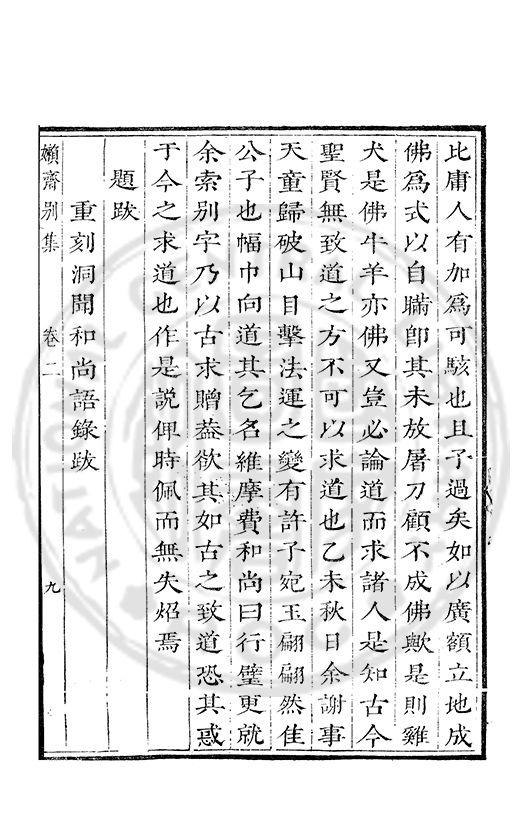 比庸人有加爲可駭也且予過矣如以廣額立地成
佛爲式以自瞞卽其未放屠刀顧不成佛歟是則雞
犬是佛牛羊亦佛又豈必論道而求諸人是知古今
聖賢無致道之方不可以求道也乙未秋日余謝事
天童歸破山目擊法運之變有許子宛玉翩翩然佳
公子也幅巾向道其乞名維摩費和尚曰行璧更就
余索别字乃以古求贈葢欲其如古之致道恐其惑
于今之求道也作是說俾時佩而無失炤焉
題跋
重刻洞聞和尚語錄跋
嬾齋别集 卷二 九